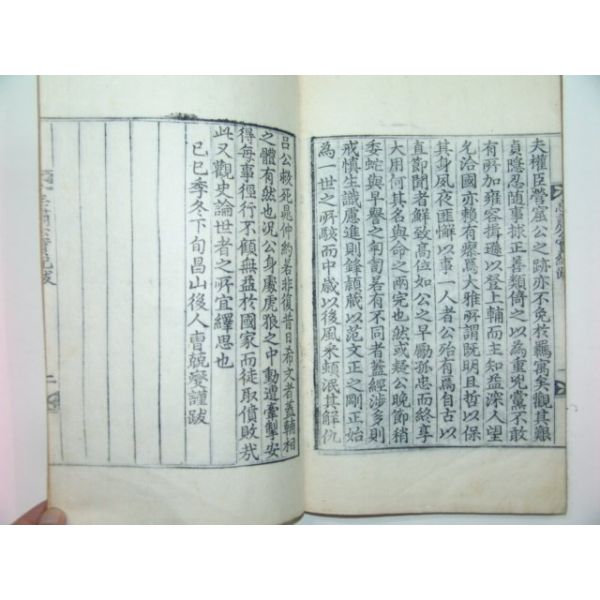 夫權臣營窟公之跡亦不免於羈寓矣觀其艱
貞隱忍隨事捄正善類倚之以爲重兇黨不敢
有所加雍容揖遜以登上輔而主知益深人望
允洽國亦賴有瘳焉大雅所謂旣明且哲以保
其身夙夜匪懈以事一人者公殆有焉自古以
直節聞者鮮致高位如公之早勵孤忠而終享
大用何其名與命之兩完也然或疑公晩節稍
委蛇與早譽之匈匐若有不同者蓋經涉多則
戒愼生識慮進則鋒顏藏以范文正之剛正始
爲一世之所駭而中歲以後風采頓泯其解仇
呂公救死晁仲約若非復昔日希文者蓋輔相
之體有然也況公身處虎狼之中動遭牽掣安
得每事徑行不顧無益於國家而徒取僨敗哉
此又觀史論世者之所宜繹思也
己巳季冬下旬昌山後人曺兢燮謹跋